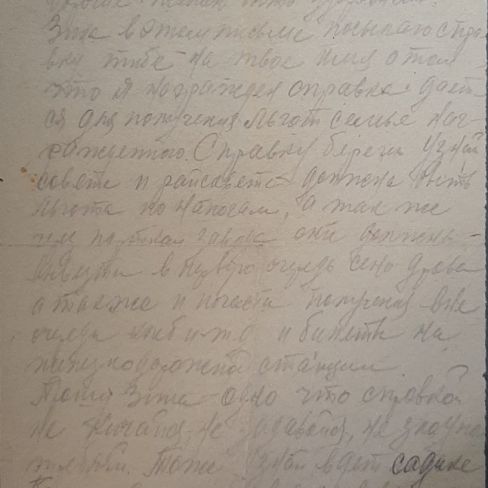 Зина в этом письме посылаю справ
ку тебе на твое имя о том
что я награжден справка дает
ся для получения льгот семье наг
ражденного. Справку береги узнай
совете и райсовете должна быть
льгота по налогам, а так же
они должны
в первую очередь сено дрова
а также и по части получения вне
очереди и билеты на
железнодорожной станции
Зина одно что справкой
не кичайся, не задавайся, не
Тоже узнай в детсадике